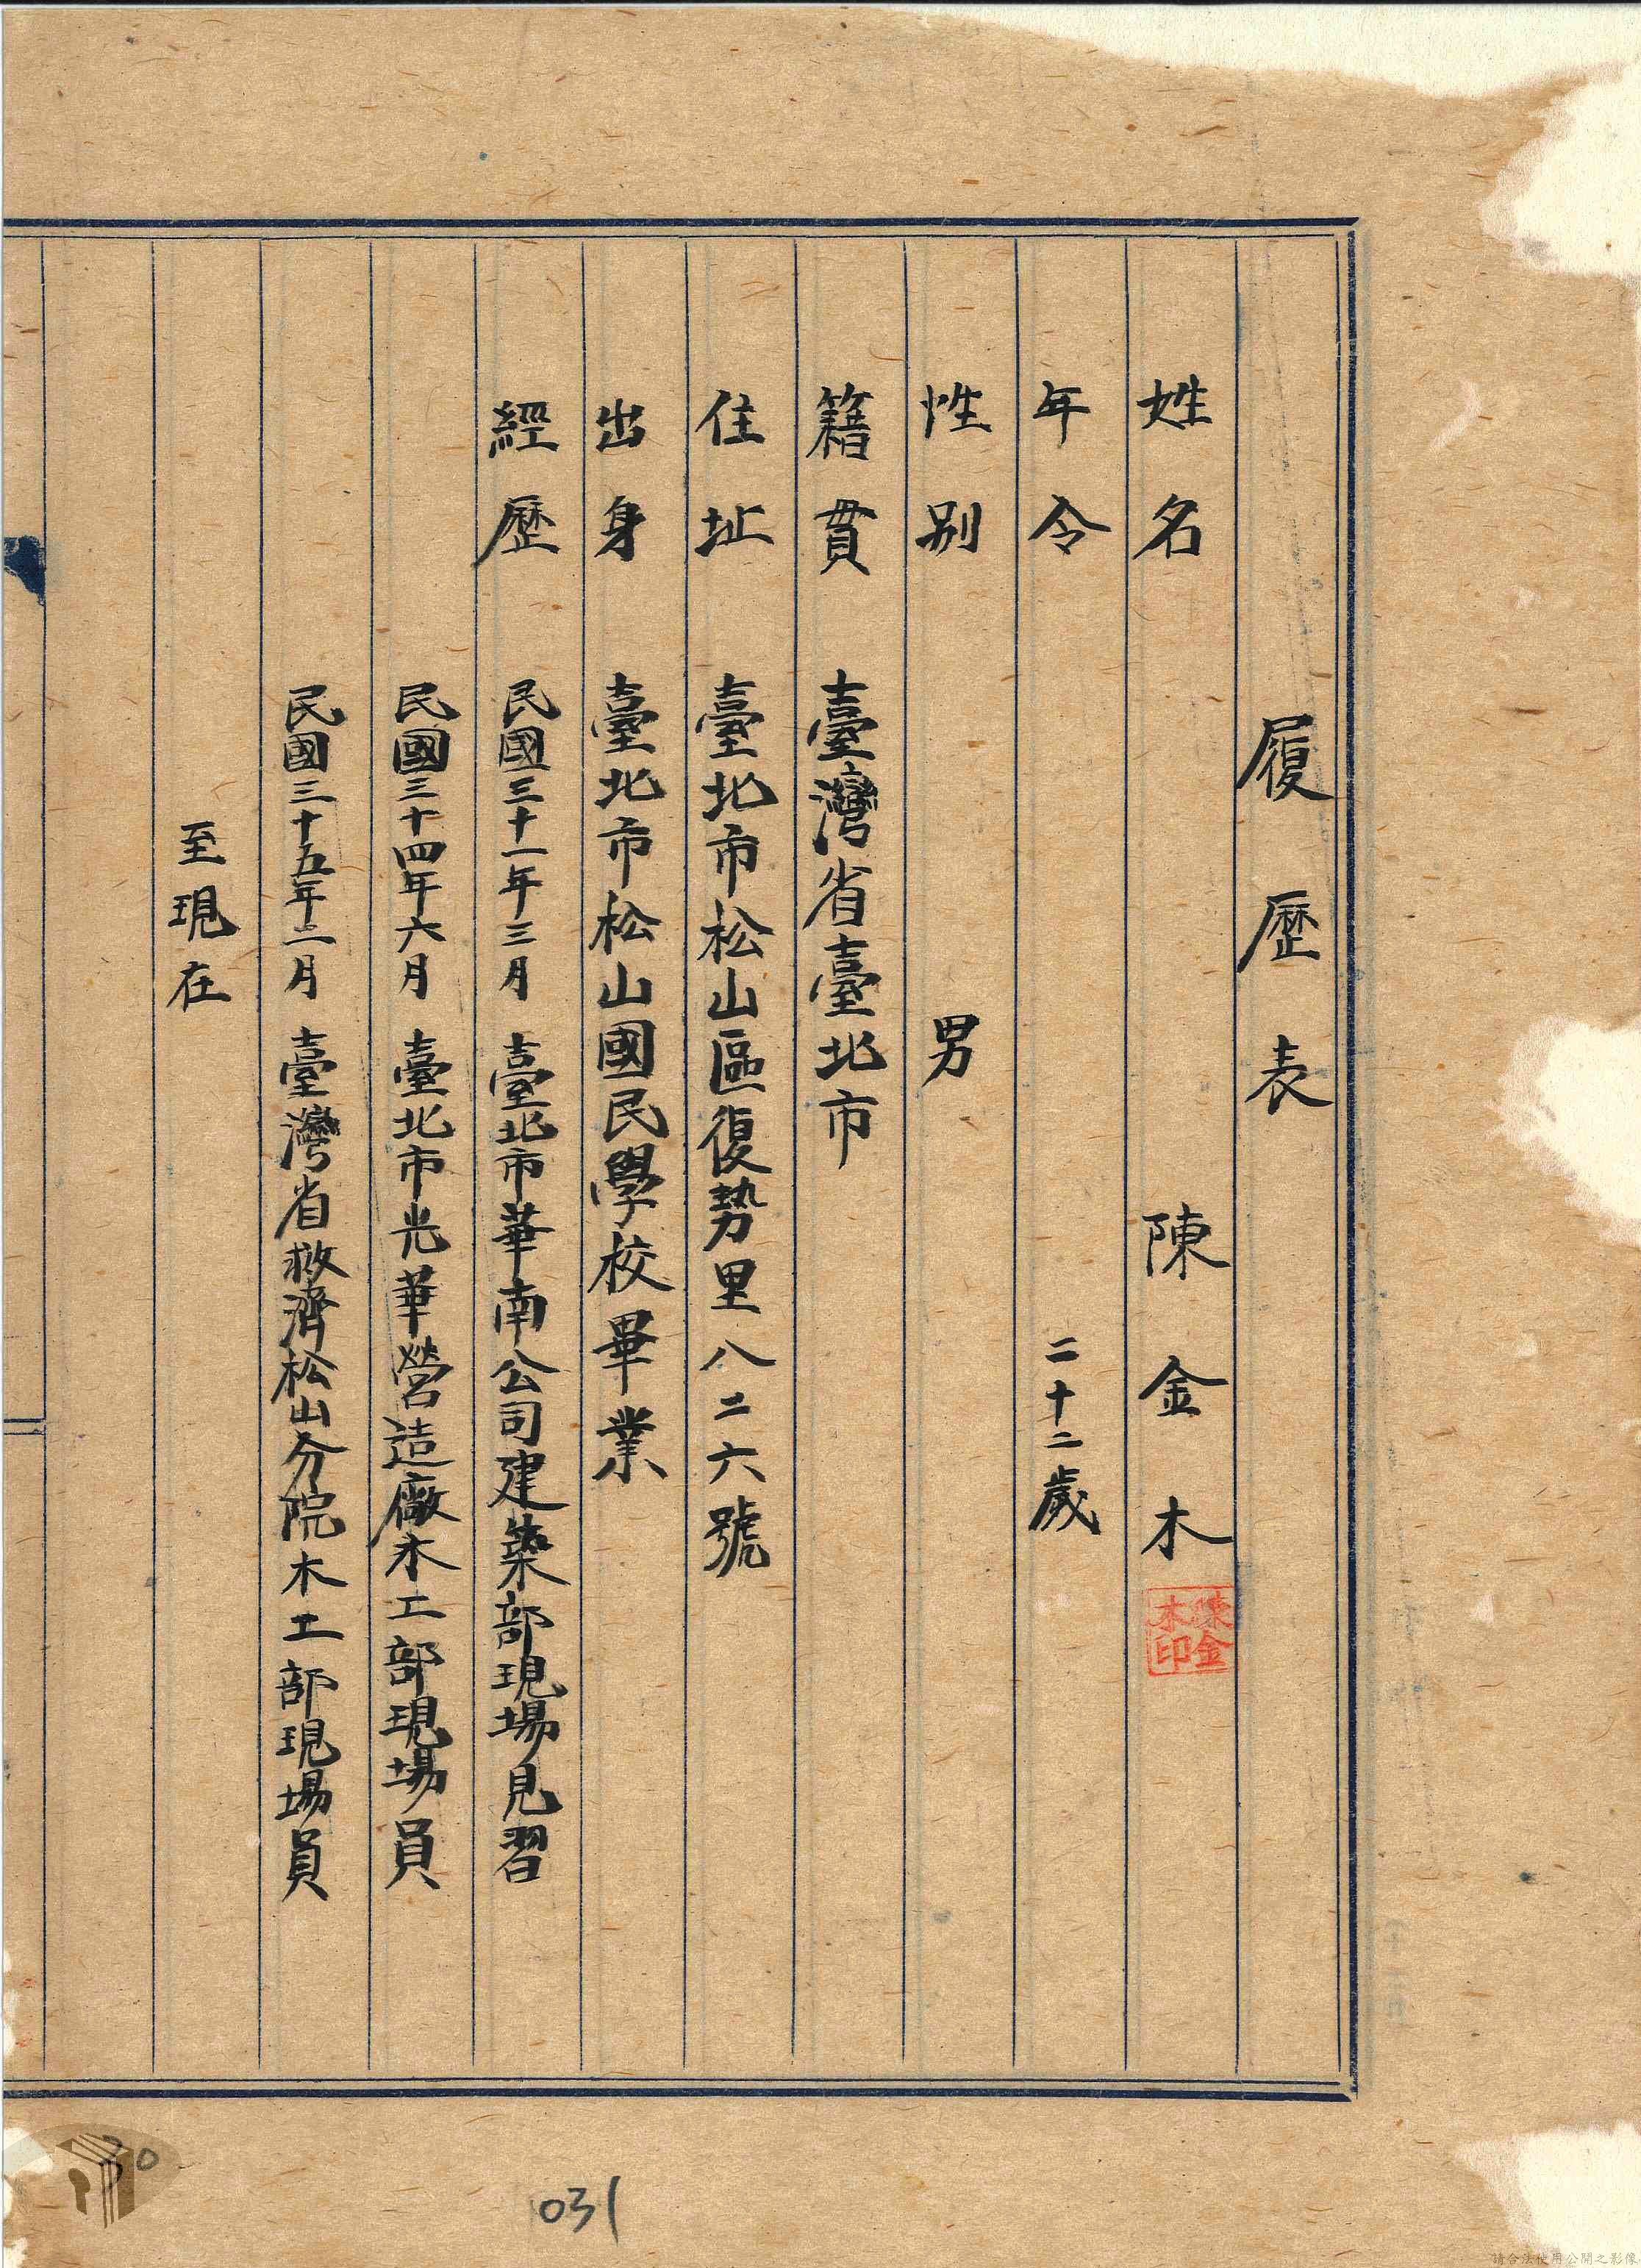 履歷表
姓名 陳金木
陳金木印
年令 二十二歲
性別 男
籍貫 臺灣省臺北市
住址 臺北市松山區復勢里八二六號
出身 臺北市松山國民學校畢業
經歷 民國三十一年三月 臺北市華南公司建築部現場見習
民國三十四年六月 臺北市光華營造廠木工部現場員
民國三十五年二月 臺灣省救濟松山分院木工部現場員
至現在
30
031
請合法使用公開之影像